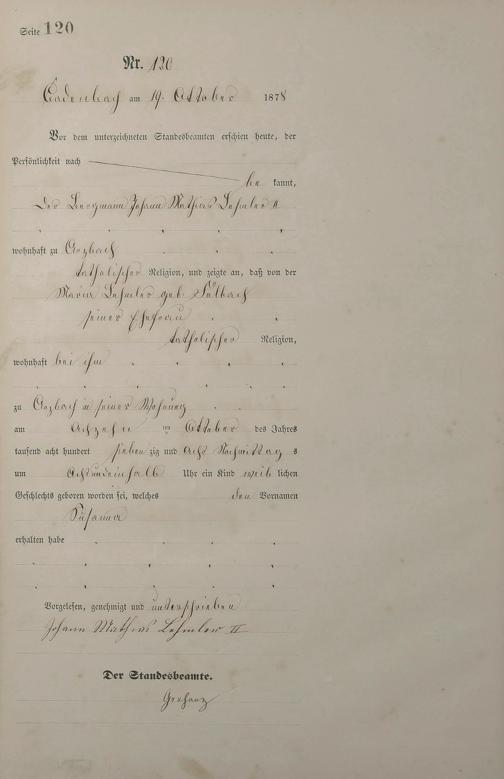 Seite 120
Nr. 120
Cadenbach am 19. Oktober 1878
Vor dem unterzeichneten Standesbeamten erschien heute, der
Persönlichkeit nach
be kannt,
der Bergmann Johann Mathias Lehmler II
wohnhaft zu Arzbach
katholischer Religion, und zeigte an, daß von der
Maria Lehmler geb.
seiner Ehefrau
katholischer Religion,
wohnhaft bei ihm
zu Arzbach in seiner Wohnung
am Achzehn ten Oktober des Jahres
tausend acht hundert sieben zig und Acht Nachmittag s
um Achtundeinhalb Uhr ein Kind weib lichen
Geschlechts geboren worden sei, welches den Vornamen
Susanna
erhalten habe
Vorgelesen, genehmigt und unterschrieben
Johann Mathias Lehmler II
Der Standesbeamte.